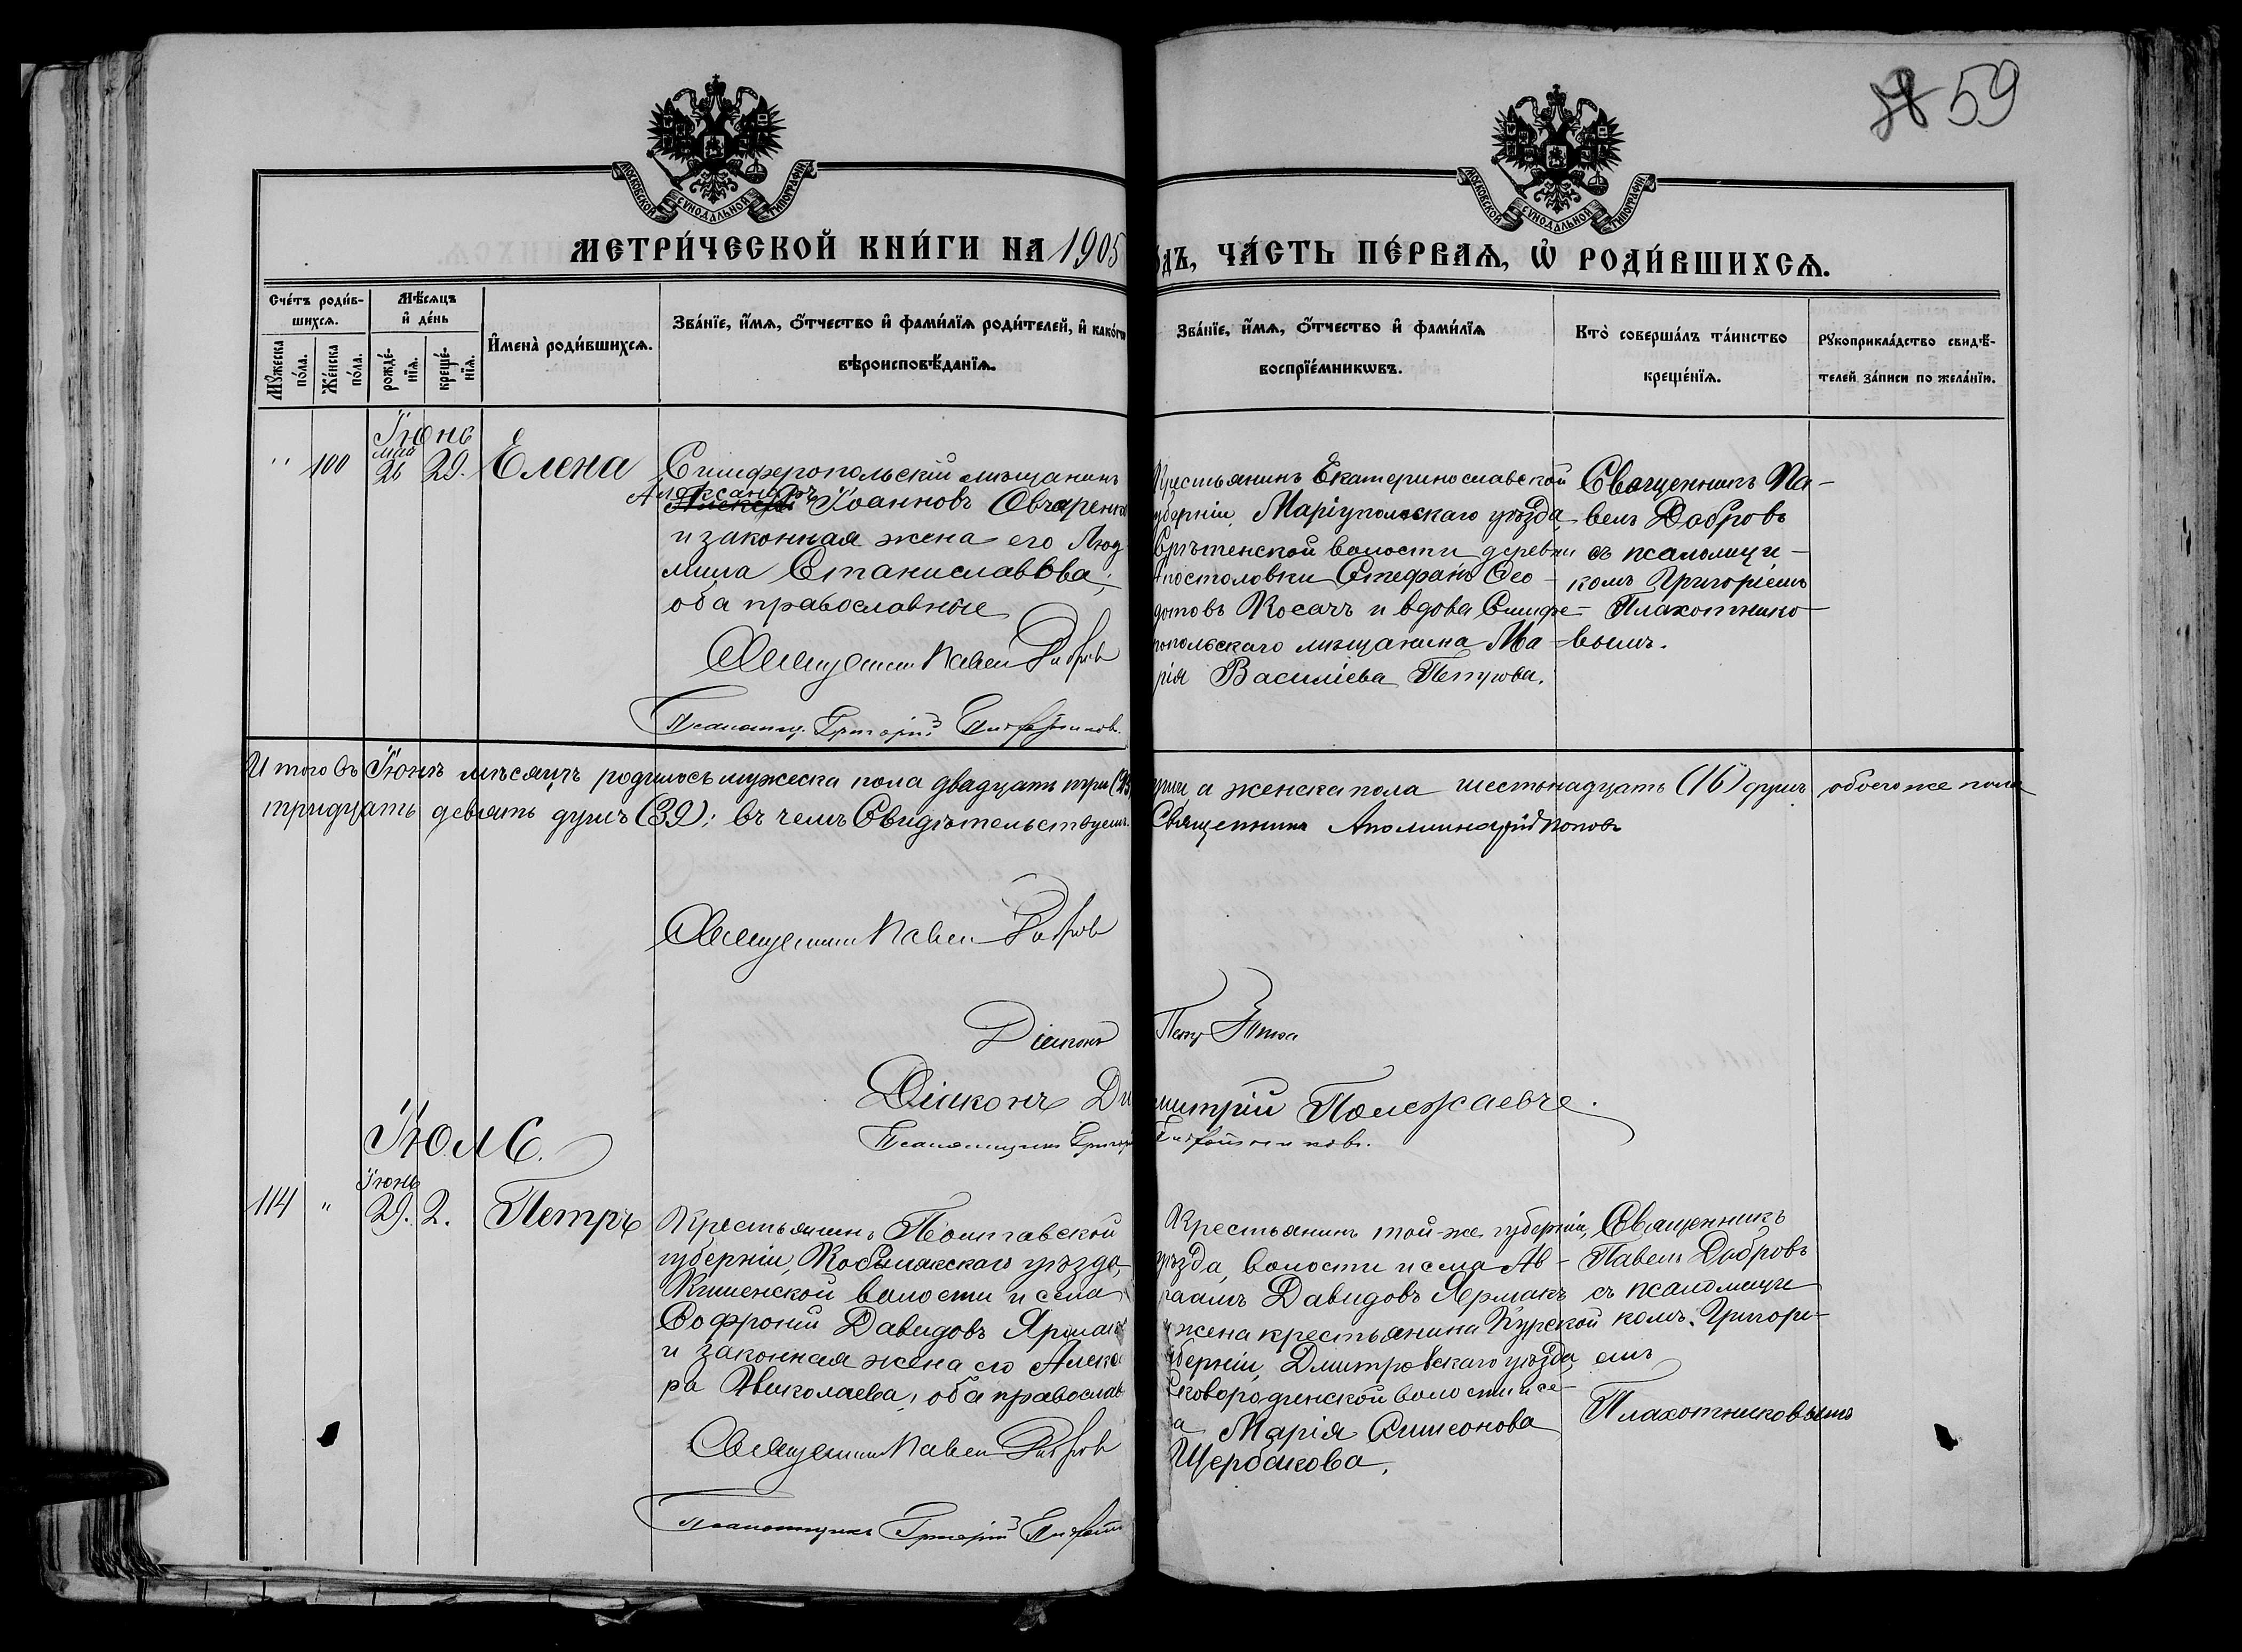 59
МОСКОВСКОЙ СѴНОДАЛЬНОЙ ТИПОГРАФІИ
МОСКОВСКОЙ СѴНОДАЛЬНОЙ ТИПОГРАФІИ
МЕТРИ́ЧЕСКОЙ КНИ́ГИ НА 1905
ДЪ, ЧА́СТЬ ПЕ́РВАѦ, Ѽ РОДИ́ВШИХСѦ.
Сче́тъ роди́в-
шихсѧ.
Мꙋ́жеска по́ла.
Же́нска по́ла.
Мѣ́сѧцъ
и҆ де́нь
рожде́-
нїѧ.
креще́-
нїѧ.
И҆мена̀ роди́вшихсѧ.
Зва́нїе, и҆́мѧ, ѻ҆́тчество и҆ фами́лїѧ роди́телей, и҆ како́гѡ
вѣроисповѣ́данїѧ.
Зва́нїе, и҆́мѧ, ѻ҆́тчество и҆ фами́лїѧ
воспрїе́мникѡвъ.
Кто̀ соверша́лъ та́инство
креще́нїѧ.
Рꙋкоприкла́дство свидѣ́-
телей за́писи по жела́нїю.
Іюнь
май
" 100 26 29. Елена
Симферопольскій мѣщанинъ
Александръ
Іоанновъ Овчаренко
и законная жена его Люд
мила Станиславова;
оба православные
Священникъ Павелъ Добровъ
Псаломщ. Григорій
Крестьянинъ Екатеринославской
губерніи, Маріупольскаго уѣзда
Срѣтенской волости деревни
Апостоловки Стефанъ Ѳео-
дотовъ Косачъ и вдова Симфе-
ропольскаго мѣщанина Ма-
рія Василіева Петрова.
Священникъ Па-
велъ Добровъ
съ псаломщи-
комъ Григоріемъ
Плахотнико-
вымъ.
Итого въ Іюнѣ мѣсяцѣ родилось мужеска пола двадцать три (23) а женска пола шестьнадцать (16) душъ обоего же пола
тридцать девять душъ (39); въ чемъ Свидѣтельствуемъ. Священникъ Аполлинарій Поповъ
Священникъ Павелъ Добровъ
Діаконъ Петръ
Діаконъ Димитрій Полежаевъ.
Псаломщикъ Григорій
Іюль.
Іюнь
114 " 29. 2. Петръ
Крестьянинъ Полтавской
губерніи, Кобылякскаго уѣзда,
Кишенской волости и села
Софроній Давидовъ Ярмакъ
и законная жена его Алекс
ра Николаева; оба православ
Священникъ Павелъ Добровъ
Псаломщикъ Григорій
Крестьянинъ той-же губерніи,
уѣзда, волости и села Ав-
раамъ Давидовъ Ярмакъ
и жена крестьянина Курской
губерніи, Дмитровскаго уѣзда
Сковородинской волости и се-
ла Марія Симеонова
Щербакова.
Священникъ
Павелъ Добровъ
съ псаломщи
комъ Григорі-
емъ
Плахотниковымъ